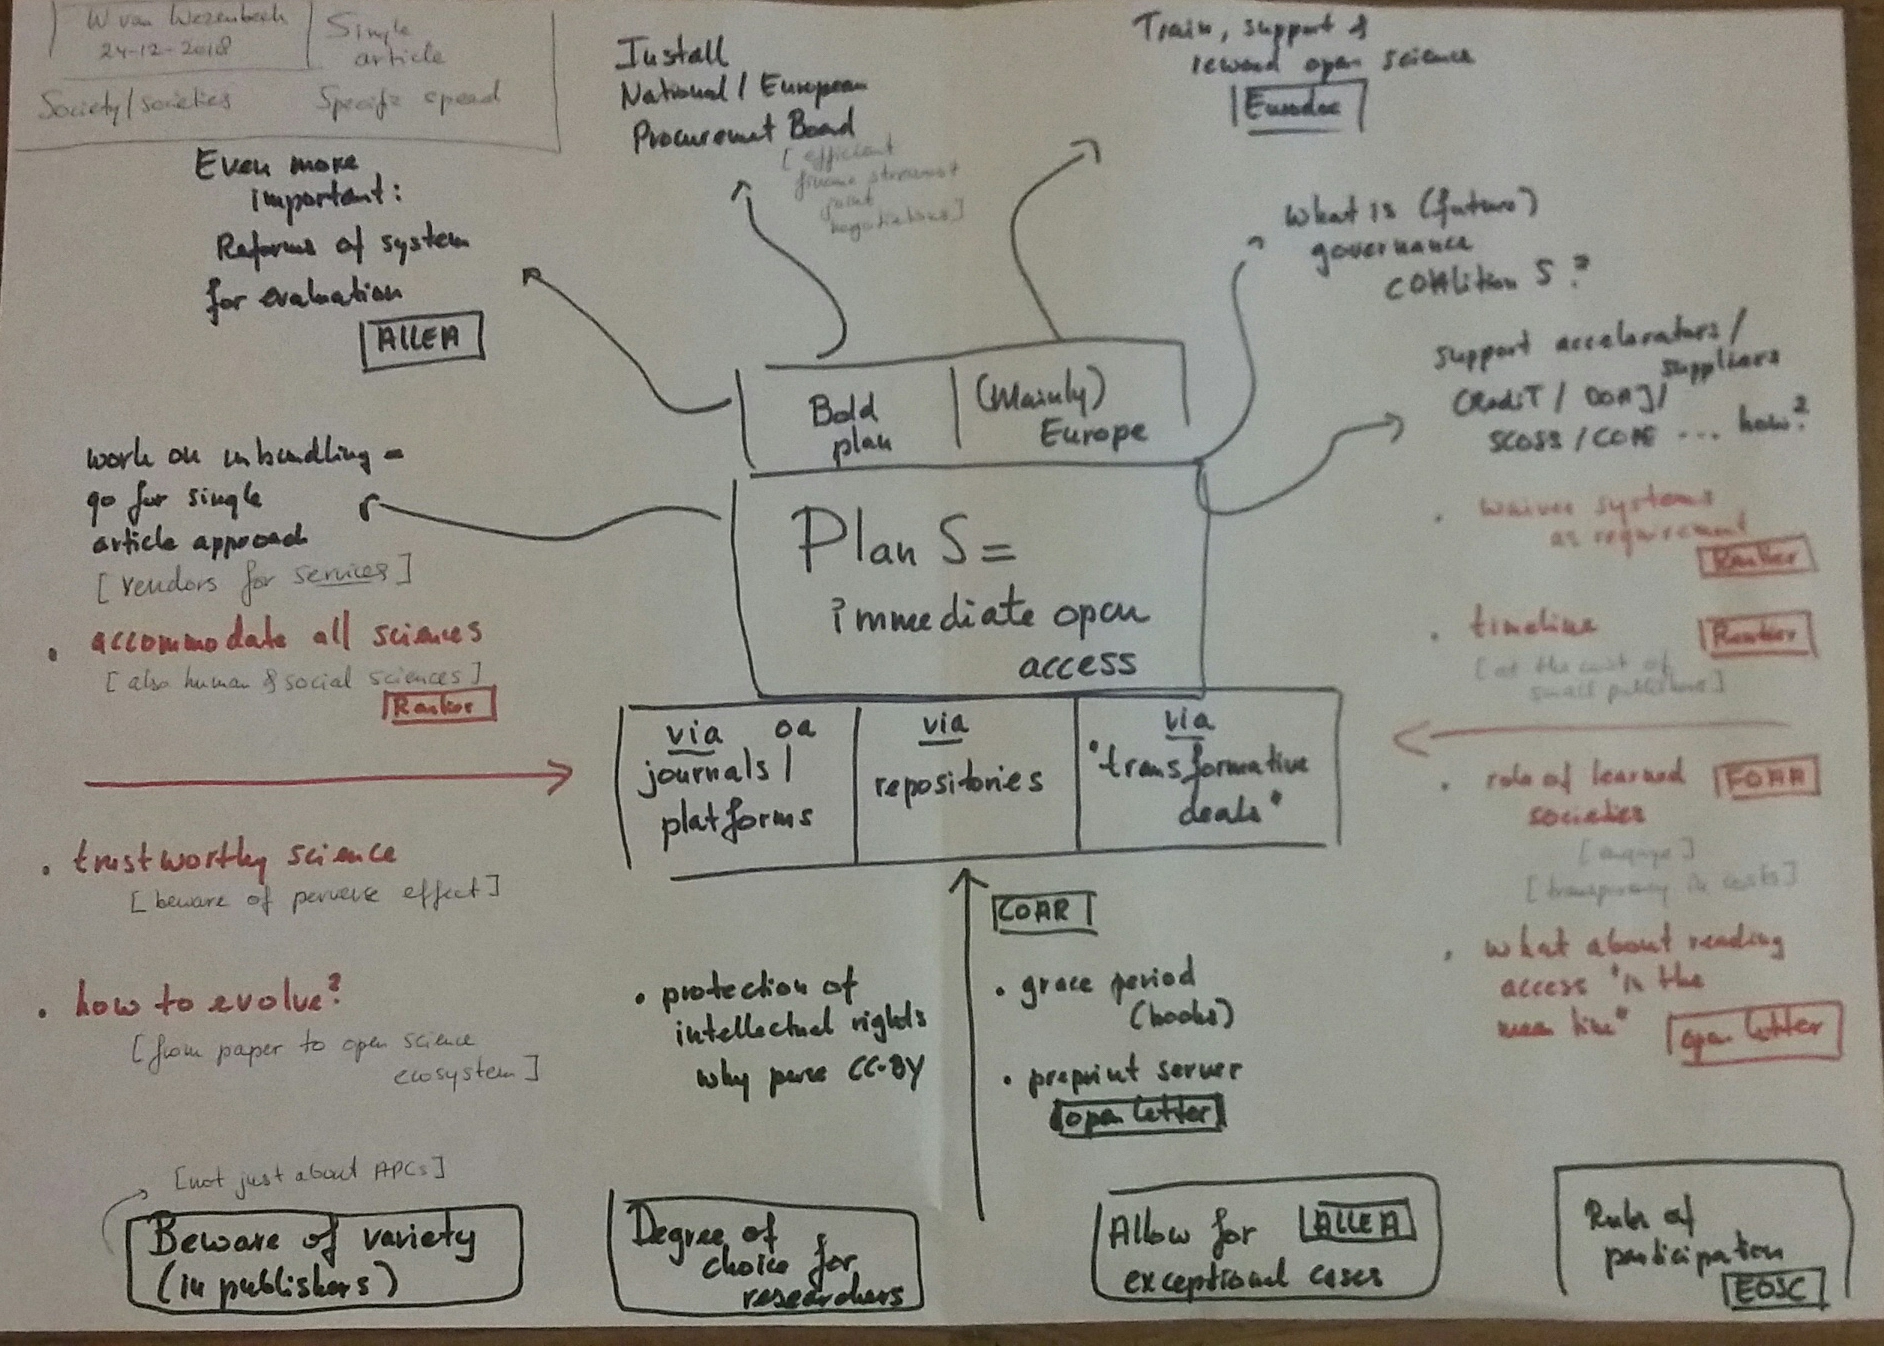 W van Wezenbeek
24-12-2018
Single
article
Society/societies
Specific spead
Even more
important:
Reforms of system
for evaluation
ALLEA
Install
National / European
Procuremet Board
[ efficient
finance streams +
joint
negotiations ]
Train, support &
reward open science
Eurodoc
What is (future)
governance
COAlition S ?
support accelerators /
suppliers
CRediT / DOAJ /
SCOSS / COPE ... how?
Bold
plan
(Mainly)
Europe
Plan S =
immediate open
access
via oa
journals /
platforms
via
repositories
via
"transformative
deals"
work on unbundling =
go for single
article approach
[ vendors for services ]
• accommodate all sciences
[ also human & social sciences ]
Rankor
• trustworthy science
[ beware of perverse effect ]
• how to evolve?
[ from paper to open science
ecosystem ]
• waiver systems
as requirement
• timeline
[ at the cost of
small publishers ]
• role of learned
societies
FOAA
[ engage ]
[ transparency in costs ]
• what about reading
access "in the
mean time"
open letter
COAR
• protection of
intellectual rights
why pure CC-BY
• grace period
(books)
• preprint server
open letter
[ not just about APCs ]
Beware of variety
(in publishers)
Degree of
choice for
researchers
Allow for ALLEA
exceptional cases
Rules of
participation
EOSC